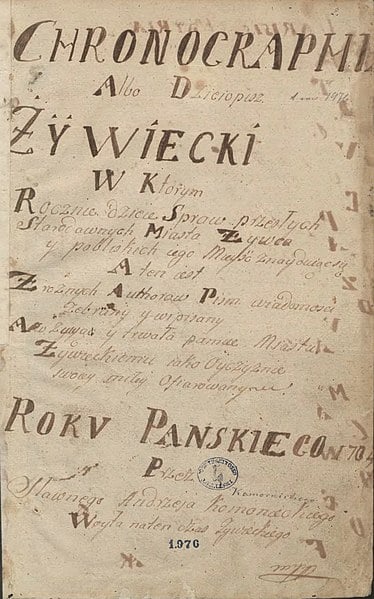 CHRONOGRAPHI
Albo Dzieiopisz
ŻŸWIECKI
W Ktorym
Rocznie dzieie Spraw przeszłych
Starodawnych Miasta Żywca
y pobliskich iego Mieysc znayduiących
A ten iest
Z roznych Authorow Pism wiadomości
Zebrany y wypisany
A
Na żywą y trwałą pamięć Miasta
Zywieckiemu iako Oyczyznie
swoiey miłey Ofiarowany
ROKV PANSKIEGO 1704
Przez
Sławnego Andrzeja Komonieckiego
Woyta naten czas Zywieckiego
1976
mpp